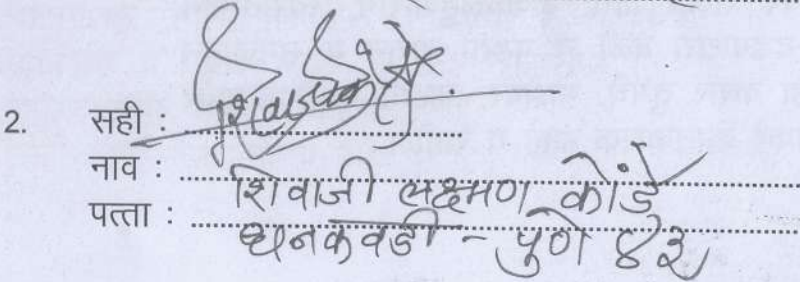 2. सही :
नाव : शिवाजी लक्ष्मण कोंडे
पत्ता : धनकवडी - पुणे ४३